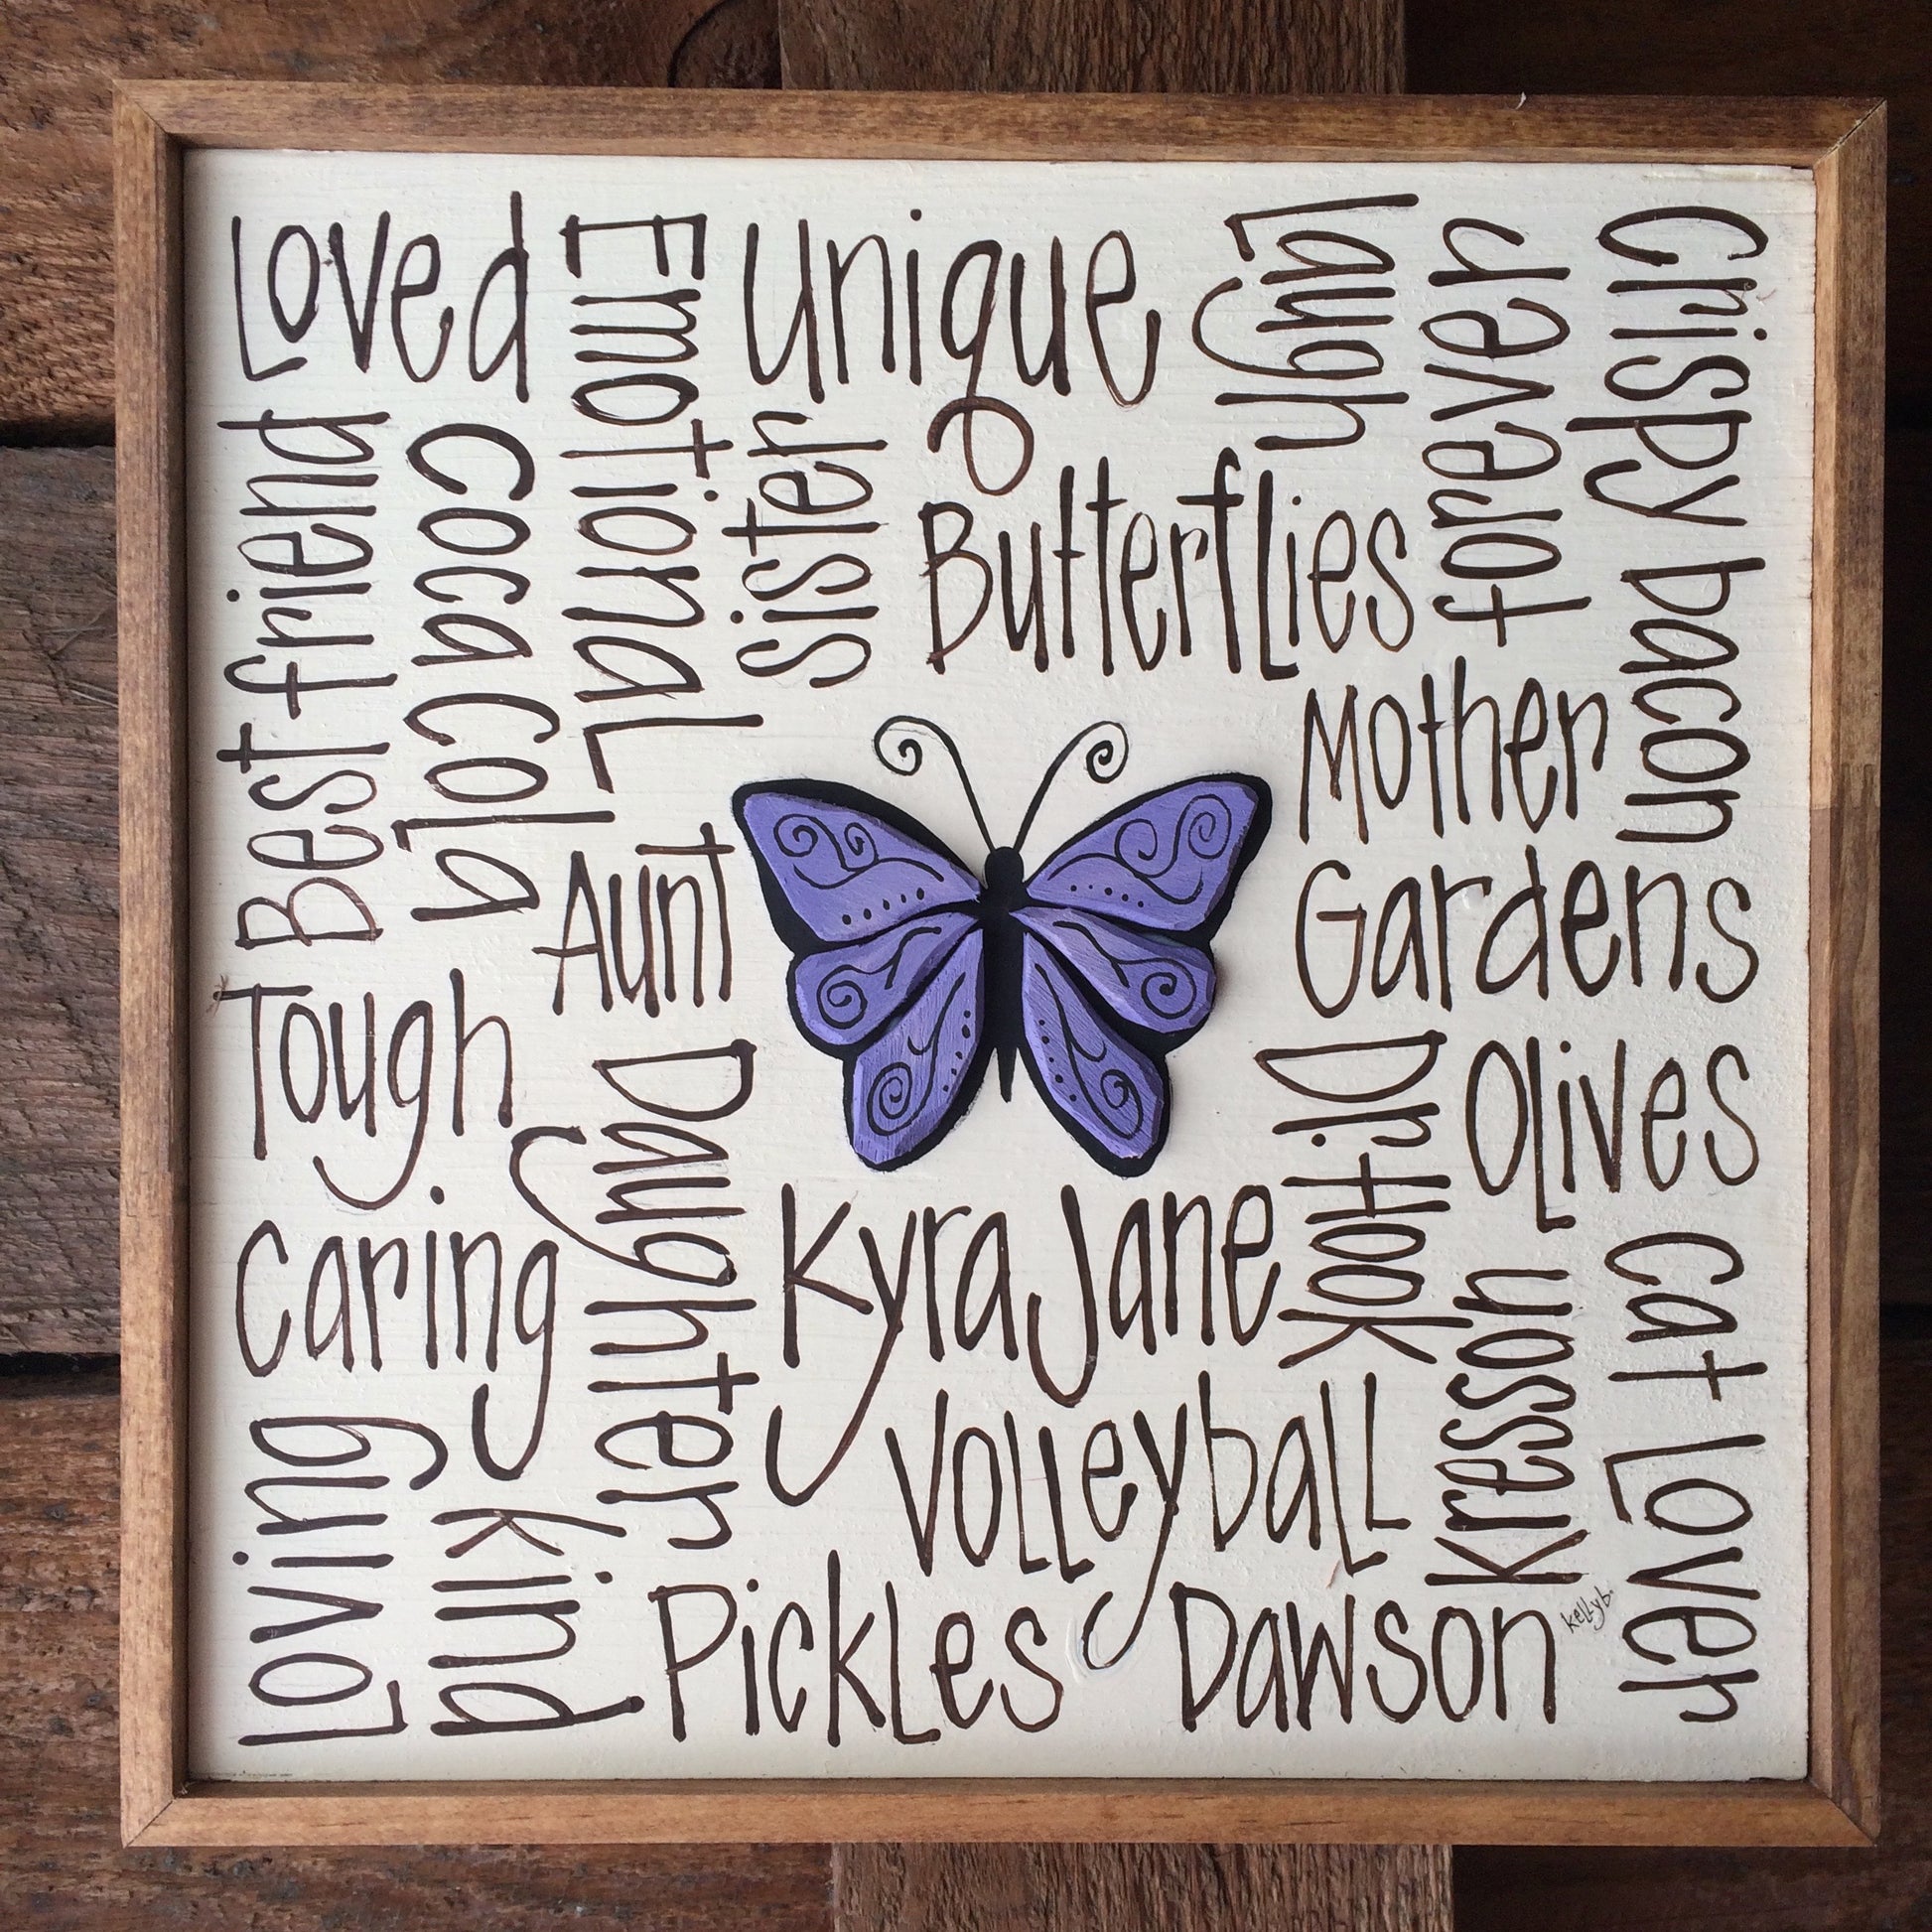 Loved
Emotional
Unique
Laugh
forever
Crispy bacon
Best friend
coca cola
sister
Butterflies
Mother
Aunt
Gardens
Tough
Daughter
Dr. Hook
Olives
Caring
Kyra Jane
Kresson
Cat Lover
Loving
kind
Volleyball
Pickles
Dawson
kellyb.